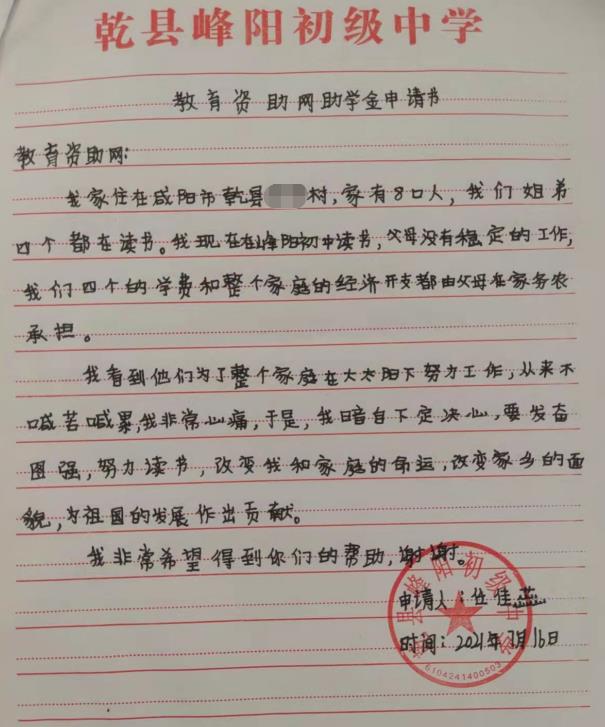 乾县峰阳初级中学
教育资助网助学金申请书
教育资助网:
我家住在咸阳市乾县 村,家有8口人,我们姐弟
四个都在读书。我现在在峰阳初中读书,父母没有稳定的工作,
我们四个的学费和整个家庭的经济开支都由父母在家务农
承担。
我看到他们为了整个家庭在大太阳下努力工作,从来不
喊苦喊累,我非常心痛,于是,我暗自下定决心,要发奋
图强,努力读书,改变我和家庭的命运,改变家乡的面
貌,为祖国的发展作出贡献。
我非常希望得到你们的帮助,谢谢。
申请人:任佳
时间:2021年7月16日
县峰阳初级中
6104241400503